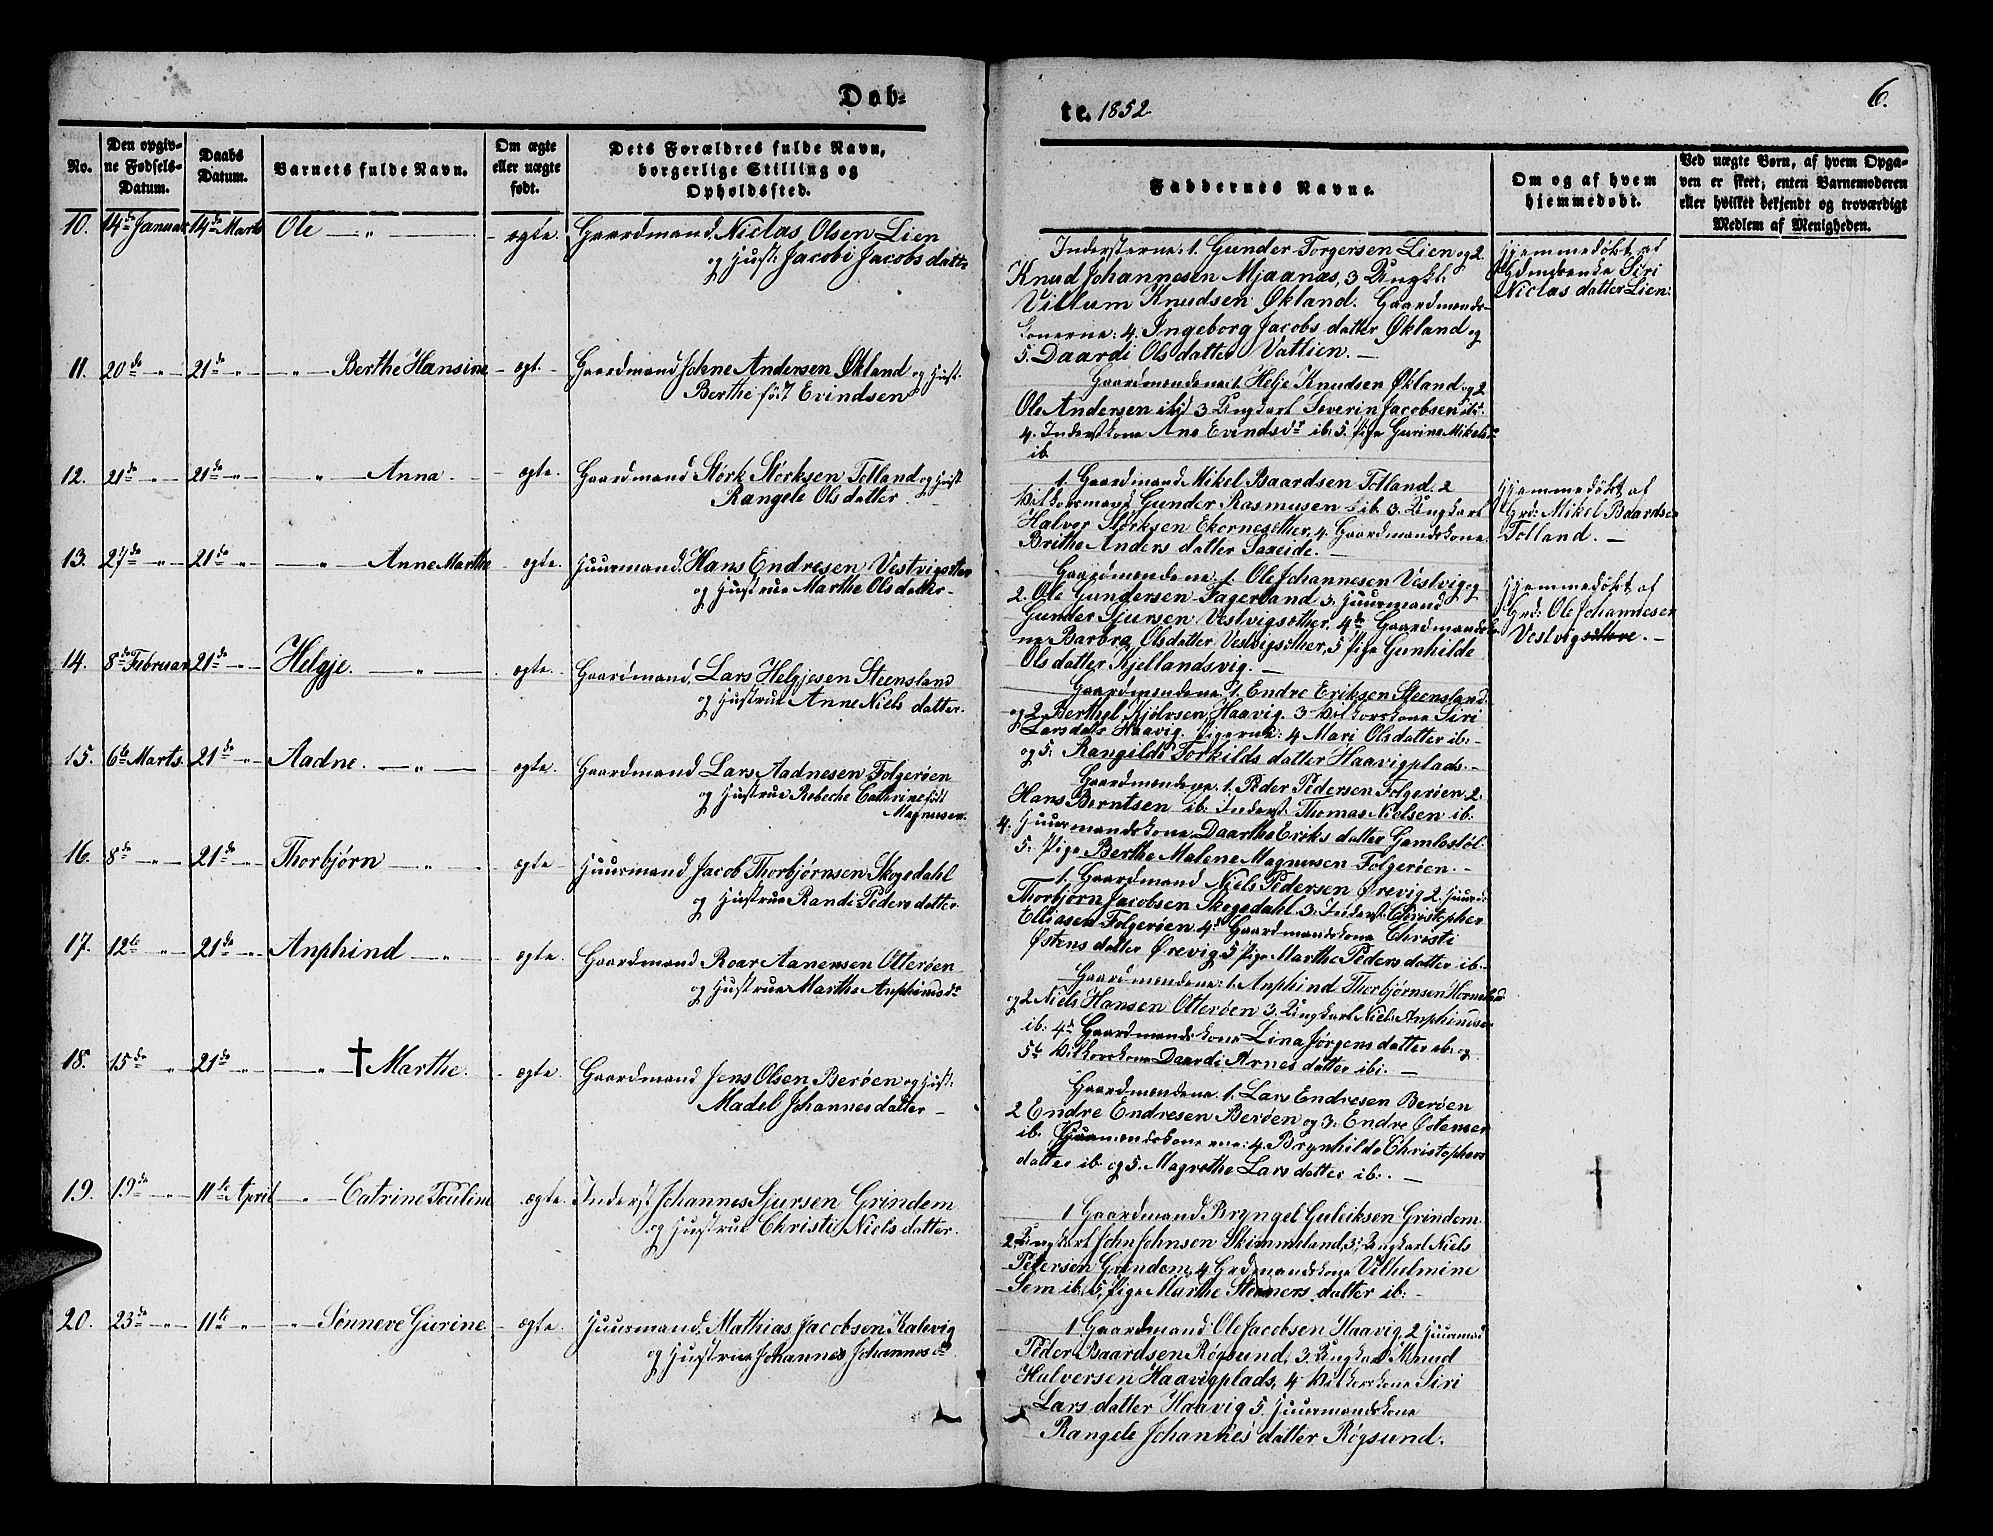 Døb-
te. 1852.
6.
No.
Den opgiv-
ne Fødsels-
Datum.
Daabs
Datum.
Barnets fulde Navn.
Om ægte
eller uægte
født.
Dets Forældres fulde Navn,
borgerlige Stilling og
Opholdssted.
Faddernes Navne.
Om og af hvem
hjemmedøbt.
Ved uægte Børn, af hvem Opga-
ven er skeet; enten Barnemoderen
eller hvilket bekjendt og troværdigt
Medlem af Menigheden.
10. 14de Januar 14de Marts Ole — " — - ægte. Gaardmand Niclas Olsen Lien
og Hust: Jacobi Jacobs datter
Insterne: 1. Gunder Torgersen Lien og 2.
Knud Johannesen Mjaanæs, 3 Ungk:
Villum Knudsen Økland. Gaardmands-
konerne: 4. Ingeborg Jacobs datter Økland og
5. Daardi Ols datter Vatlien. —
Hjemmedøbt af
Siri
Niclas datter Lien:
11. 20de " - 21de " - " — Berthe Hansine - ægt. - Gaardmand Johne Andersen Økland og Hust:
Berthe født Evindsen
Gaardmendene 1. Helje Knudsen Økland og 2
Ole Andersen ibid 3 Ungkarl Severin Jacobsen ib:
4. Inderstkone Ane Evindsdr ib: 5. Pige Gurine Mikelsdr
ib.
12. 21de - " - 21de - " - " — Anna. - ægte. Gaardmand Størk Størksen Tolland og Hust
Rangele Ols datter -
1. Gaardmand Mikel Baardsen Tolland. 2
Vilkorsmand Gunder Rasmusen ib. 3. Ungkarl
Halvor Størksen Ekornesæther, 4. Gaardmandskone
Brithe Anders datter Saxeide. —
Hjemmedøbt af
Grd: Mikel Baardsen
Tolland. —
13. 27de - " - 21de - " - — " — Anne Marthe - ægte. Huurmand. Hans Endresen Vestvigæter
og Hustrue Marthe Ols datter -
Gaardmendene 1. Ole Johannesen Vestvig og
2. Ole Gundersen Fagerland 3. Huurmand
Gunder Sjursen Vestvigsæther, 4de Gaardmandsko-
ne Barbra Olsdatter Vestvigsæther, 5 Pige Gunhilde
Ols datter Kjellandsvig. —
Hjemmedøbt af
Grd: Ole Johannesen
Vestvig —
14. 8de Februar 21de - " - Helgje. — " — - ægte. Gaardmand, Lars Helgjesen Steensland
og Hustrue Anne Niels datter.
Gaardmendene 1. Endre Eriksen Steensland
og 2. Berthel Kjølvsen Haavig. 3 Vilkorskone Siri
Larsdatr Haavig. Pigerne: 4 Mari Olsdatter ib: -
og 5. Rangilde Torkilds datter Haavigplads. -
15. 6te Marts. 21de - " - Aadne. — " — ægte. Gaardmand Lars Aadnesen Folgerøen
og Hustrue Rebeche Cathrine født
Magnusen.
Gaardmendene. 1. Peder Pedersen Folgerøen 2.
Hans Berntsen ib: Inderst Thomas Nielsen ib:
4. Huurmandskone Daarthe Eriks datter Gamlestøl.
5. Pige Berthe Malene Magnusen Folgerøen. -
16. 8de - " - 21de - " - Thorbjørn — " — ægte - Huurmand Jacob Thorbjørnsen Skogedahl
og Hustrue Randi Peders datter
1. Gaardmand Niels Pedersen Ørevig 2. Huurm:
Thorbjørn Jacobsen Skogedahl. 3. Inderst: Christopher
Elliasen Folgerøen 4de Gaardmandskone Christi
Østens datter Ørevig 5 Pige Marthe Peders datter ib: -
17. 12te " - 21de - " - Anphind — " — ægte. Gaardmand Roar Aanensen Otterøen
og Hustrue Marthe Anphindsdr
Gaardmendene: 1. Anphind Thorbjørnsen
og 2 Niels Hansen Otterøen 3. Ungkarl Niels Anphindsen
ib: 4de Gaardmandskone Lina Jørgens datter ib: og
5te Vilkorskone Daardi Arnes datter ibi: —
18. 15de - " - 21de - " - — " — † Marthe. - ægte. Gaardmand Jens Olsen Berøen og Hust:
Madel Johannes datter —
Gaardmendene. 1. Lars Endresen Berøen
2 Endre Endresen Berøen og 3. Endre Østensen
ib. Huurmandskonerne: 4. Brynhilde Christophers
datter ib. og 5. Magrethe Lars datter ib: . —
†
19. 19de - " - 11te April - " — Catrine Pouline ægte. Inderst Johannes Sjursen Grindem
og Hustrue Christi Niels datter.
1 Gaardmand. Bryngel Guleiksen Grindem.
2. Ungkarl John Johnsen Skimmeland, 3; Ungkarl Niels
Petersen Grindem. 4 Grdmandskone Vilhelmine
Sem ib: 5, Pige Marthe Steners datter ib: -
20. 23de - " - 11te " - " - " - Sønneve Gurine - ægte. - Huurmand. Mathias Jacobsen Kalevig
og Hustrue Johannes Johannesdr
1 Gaardmand Ole Jacobsen Haavig, 2 Huurmand
Peder Baardsen Røgsund, 3. Ungkarl Knud
Halversen Haavigplads, 4 Vilkorskone Siri
Lars datter Haavig 5. Huurmandskone
Rangele Johannes datter Røgsund.